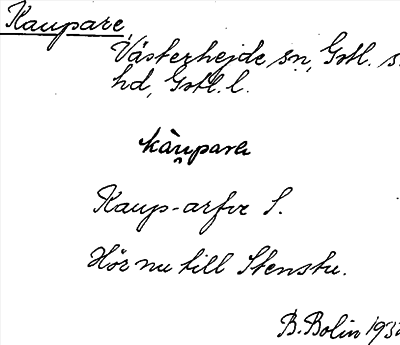 Kaupare,
Västerhejde sn, Gotl. s.
hd, Gotl. l.
kàu̯para
Kaup-arfve S.
Hör nu till Stenstu.
B. Bolin